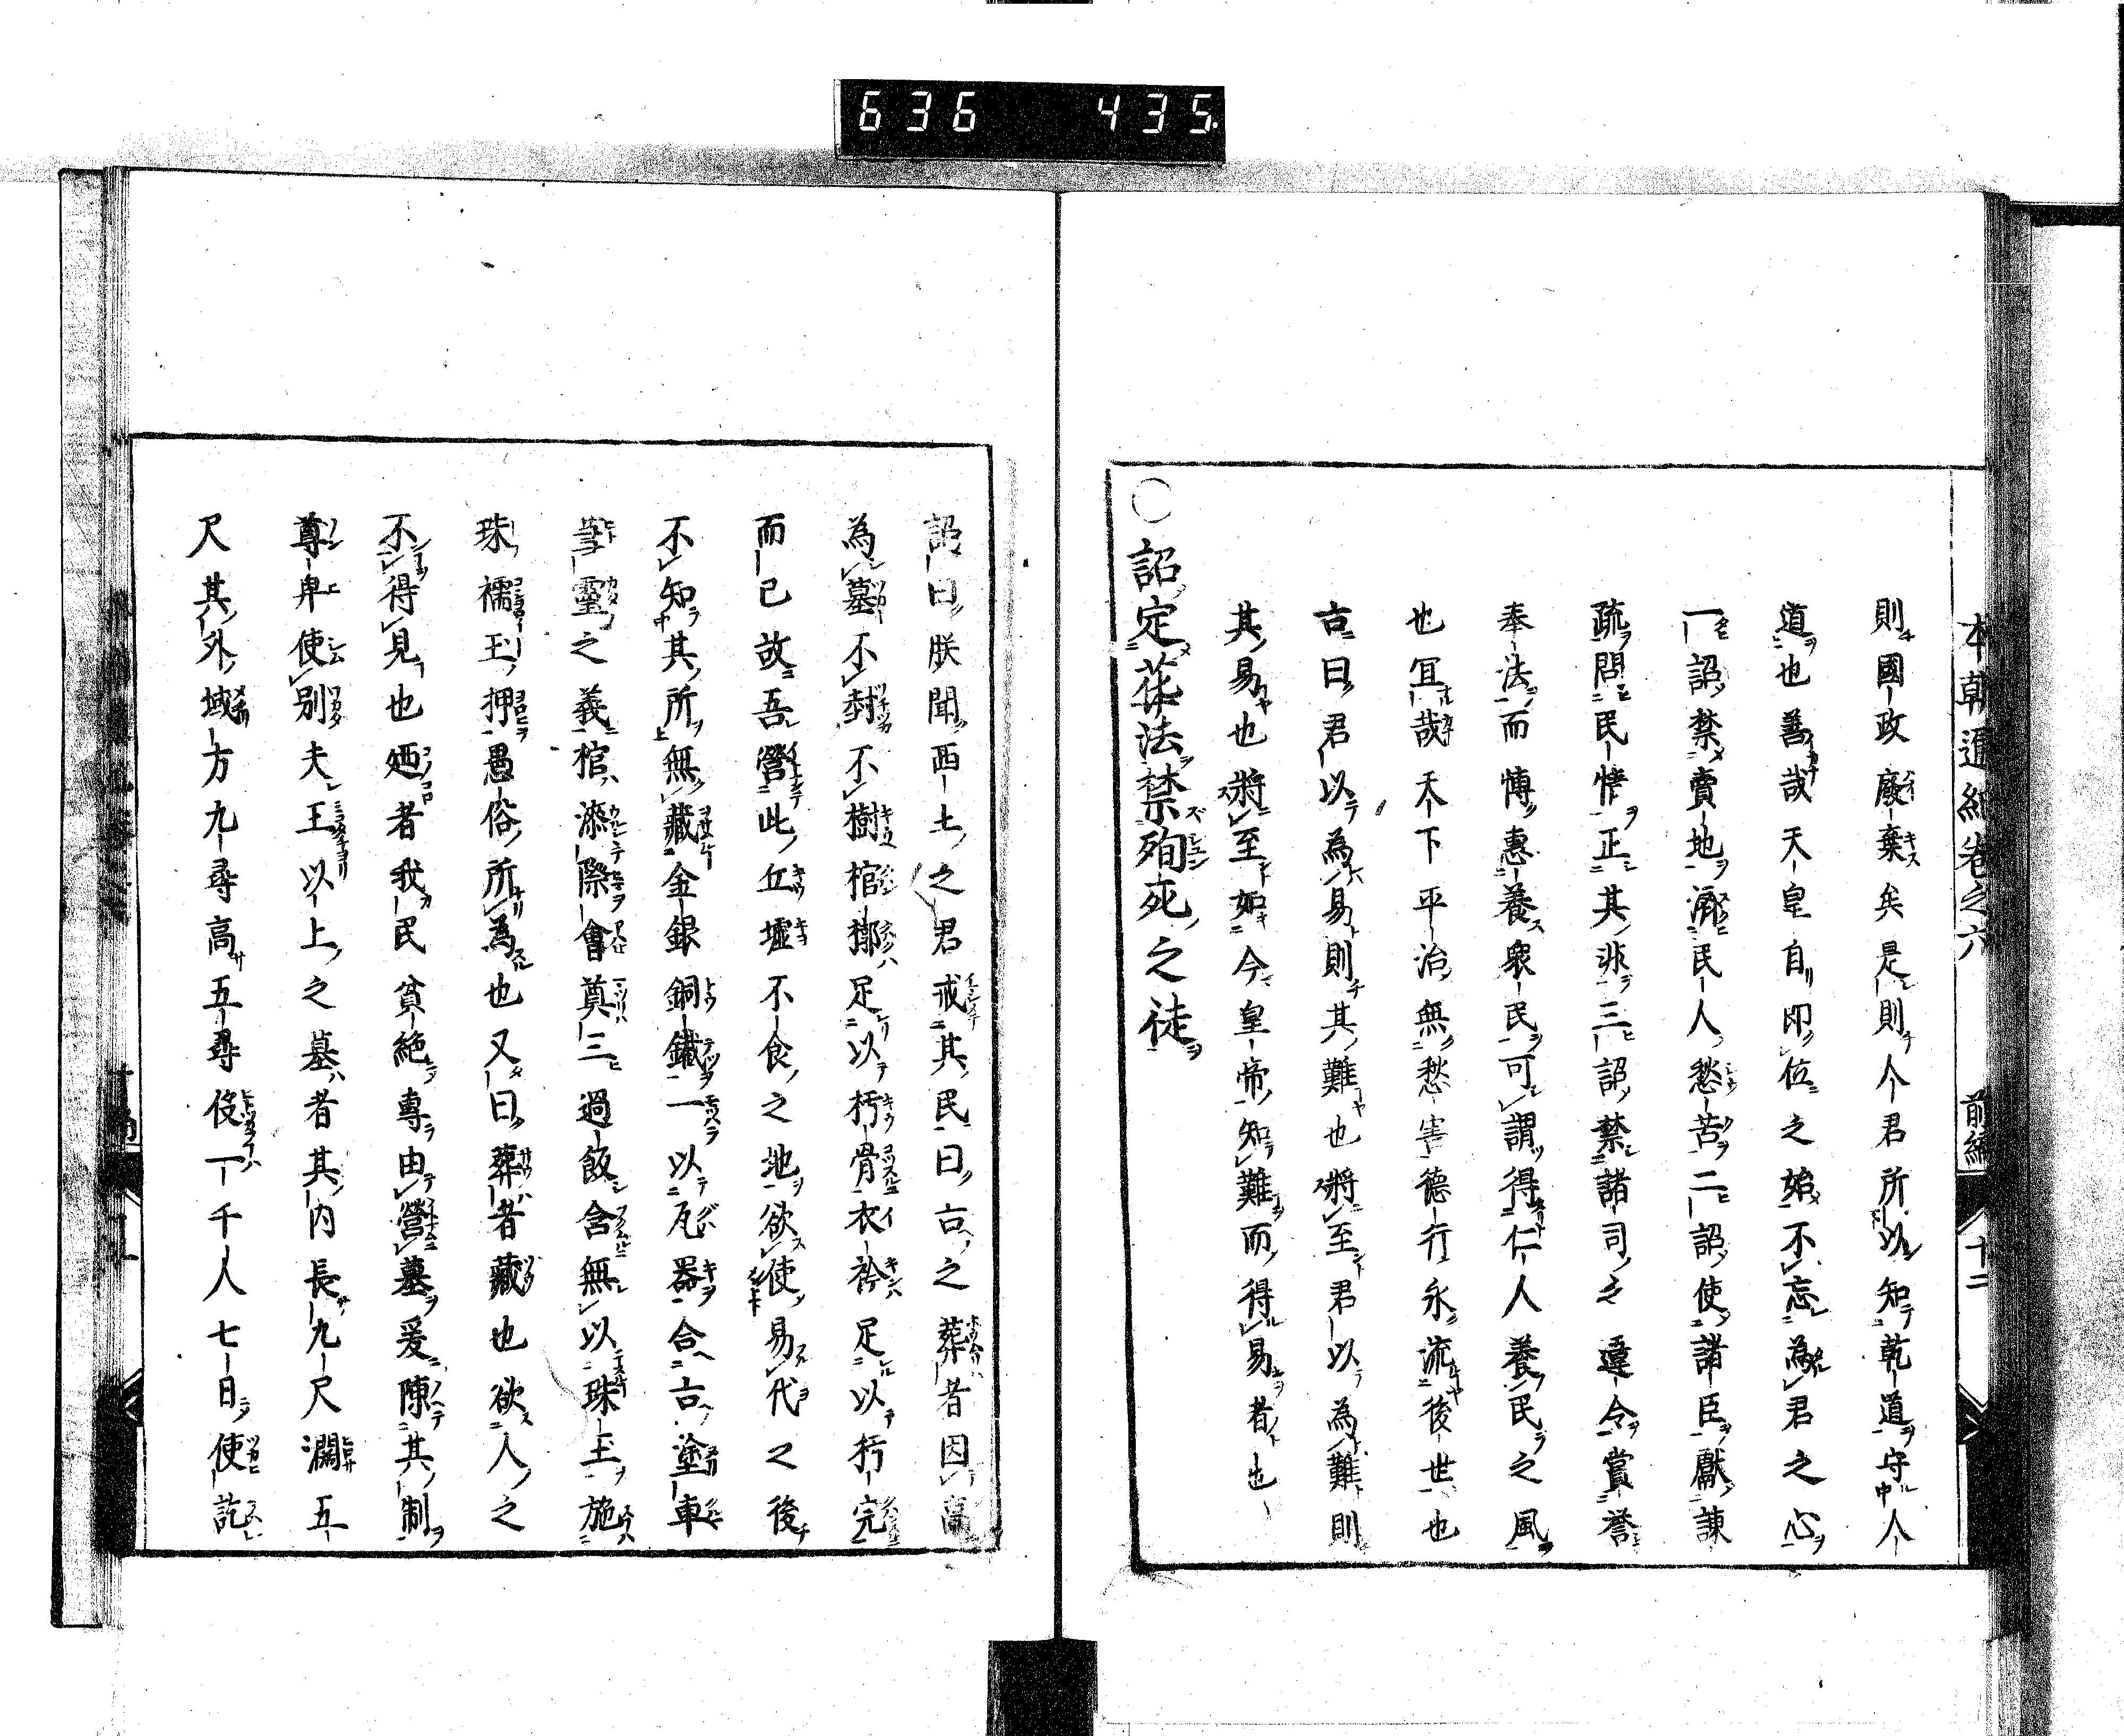 636 435
本朝通紀卷之六 前編 十二
則國政廢棄矣是則人君所以知乾道守人
道也善哉天皇自即位之始不忘為君之心
一詔禁賣地濟民人愁苦二詔使諸臣獻諫
疏問民悽正其非三詔禁諸司之違令賞誉
奉法而博惠養衆民可謂得仁人養民之風
也冝哉天下平治無愁害德行永流後世也
古曰君以為易則其難也將至君以為難則
其易也將至如今皇帝知難而得易者也
○詔定葬法禁殉死之徒
詔曰朕聞西土之君戒其民曰古之葬者因高
為墓不封不樹棺槨足以朽骨衣衿足以朽完
而已故吾營此丘墟不食之地欲使易代之後
不知其所無藏金銀銅鐵一以瓦器合古塗車
蒭靈之義棺漆際會奠三過飯含無以珠玉施
珠襦玉押愚俗所為也又曰葬者藏也欲人之
不得見也廼者我民貧絶專由營墓爰陳其制
尊卑使別夫王以上之墓者其内長九尺濶五
尺其外域方九尋高五尋役一千人七日使訖